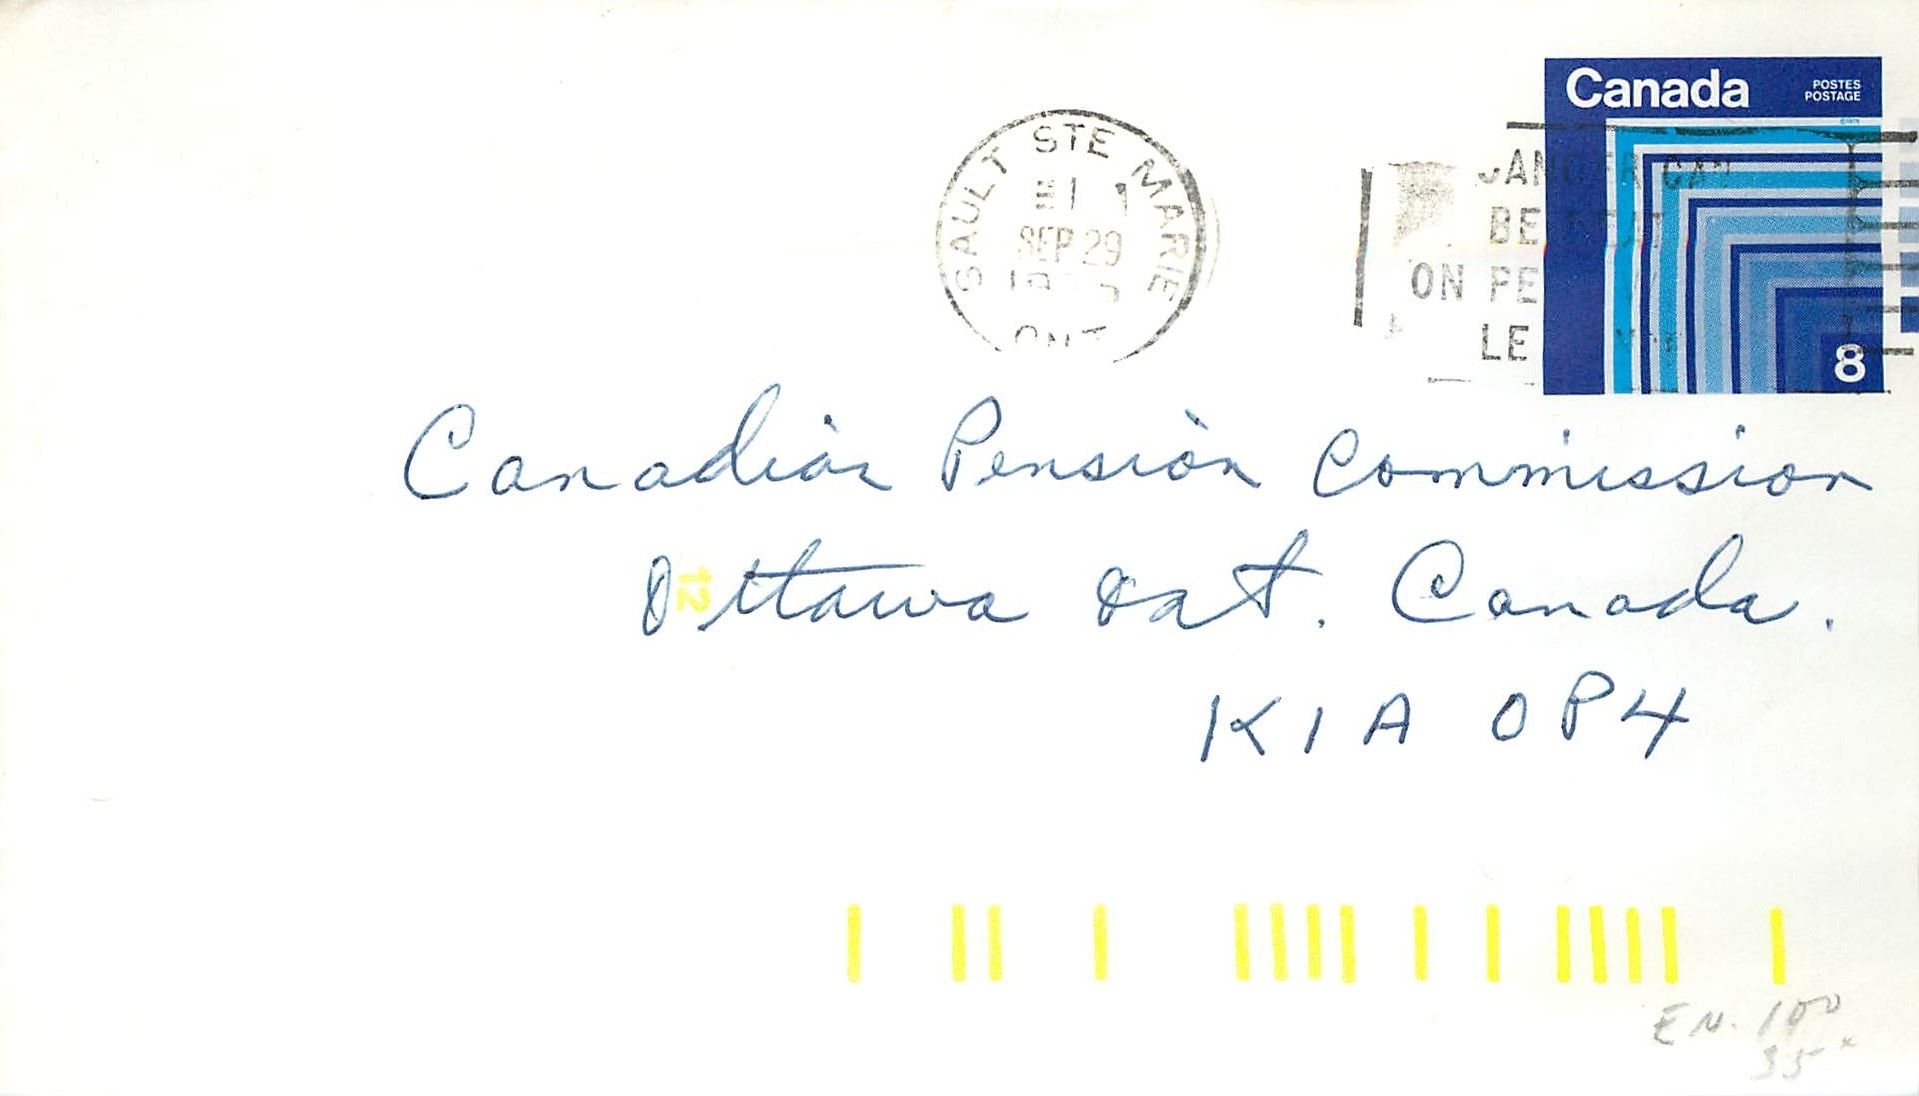 Canada
POSTES
POSTAGE
SAULT STE MARIE
SEP 29
ONT
CAN
BE
ON
LE
8
Canadian Pension Commission
Ottawa Ont. Canada.
12
K1A 0P4
EN. 100
35